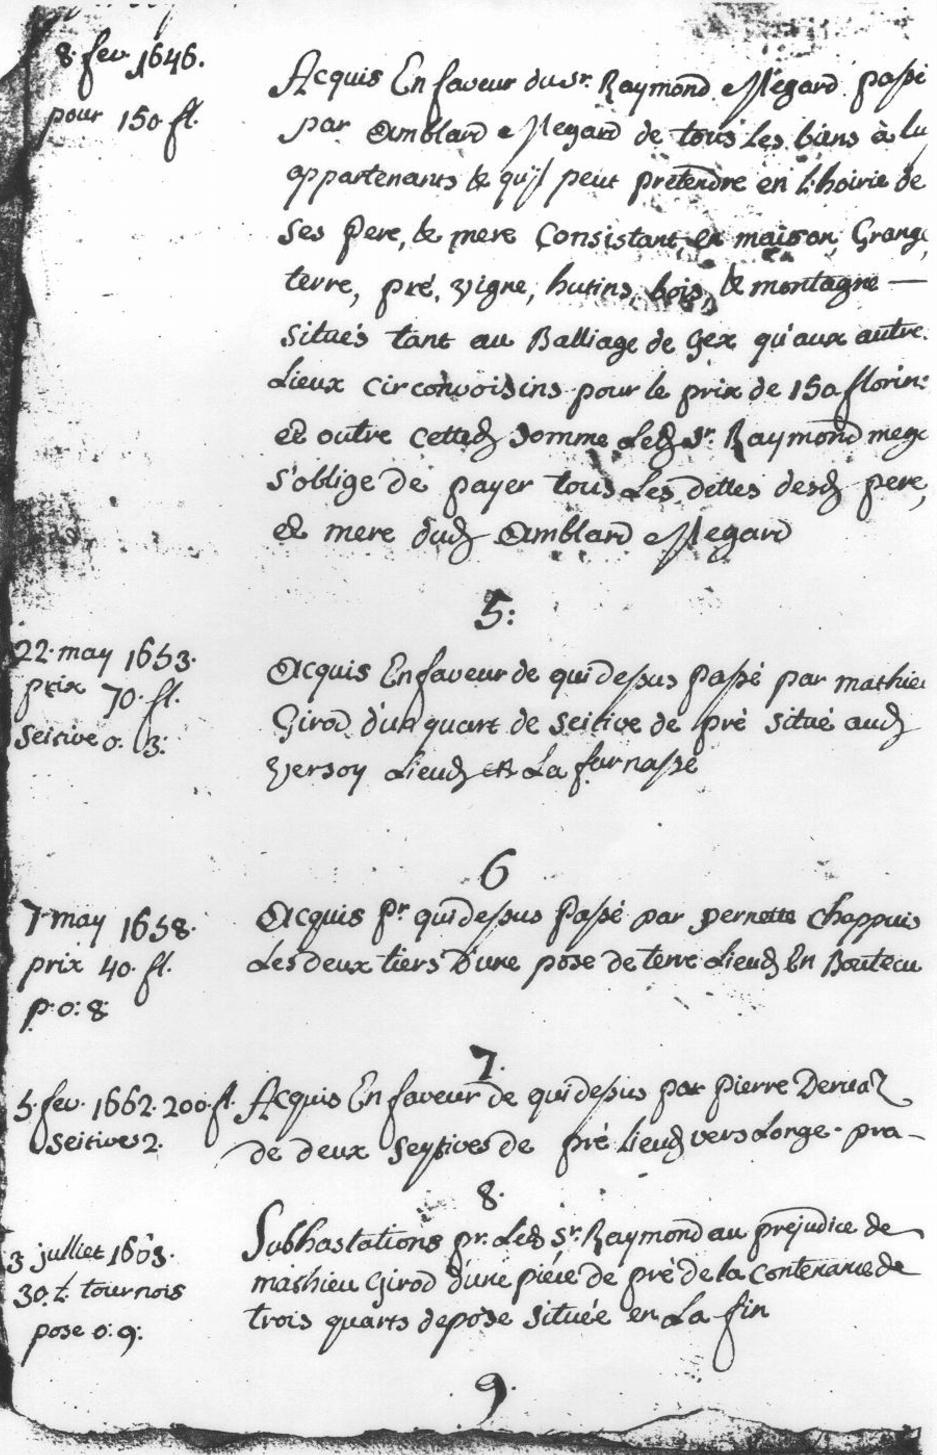 8. fev. 1646.
pour 150 fl.
Acquis En faveur du Sr. Raymond Megard passé
par Amblard Megard de tous les biens à lu
appartenants & qu'jl peut pretendre en l'hoirie de
Ses Pere, & mere Consistant en maison, Grange
terre, pré, vigne, hutins, bois, & montagne —
Situés tant au Balliage de Gex qu'aux autre.
Lieux circonvoisins pour le prix de 150 florins
et outre cetted. Somme Led. Sr. Raymond mega
s'oblige de payer tous Les dettes desd. pere,
et mere dud. Amblard Megard
5:
22. may 1653.
prix 70. fl.
Seitive 0. 3:
Acquis En faveur de qui dessus Passé par mathieu
Girod d'un quart de Seitive de pré Situé aud.
Versoy Lieud. en La fornasse
6
7. may 1658.
prix 40. fl.
p. 0: 8.
Acquis Pr. qui dessus Passé par pernette Chappuis
Les deux tiers D'une pose de terre Lieud. En Boutecu
7.
5. fev. 1662. 200. fl.
Seitives 2.
Acquis En faveur de qui dessus par Pierre
de deux Seytives de pré lieud. vers Longe-pra-
8.
3 julliet 1663.
30. L. tournois
pose 0: 9:
Subhastations pr. Led. Sr. Raymond au prejudice de
mathieu Girod d'une piéce de pré de la Contenance de
trois quarts de pose Située en La fin
9.